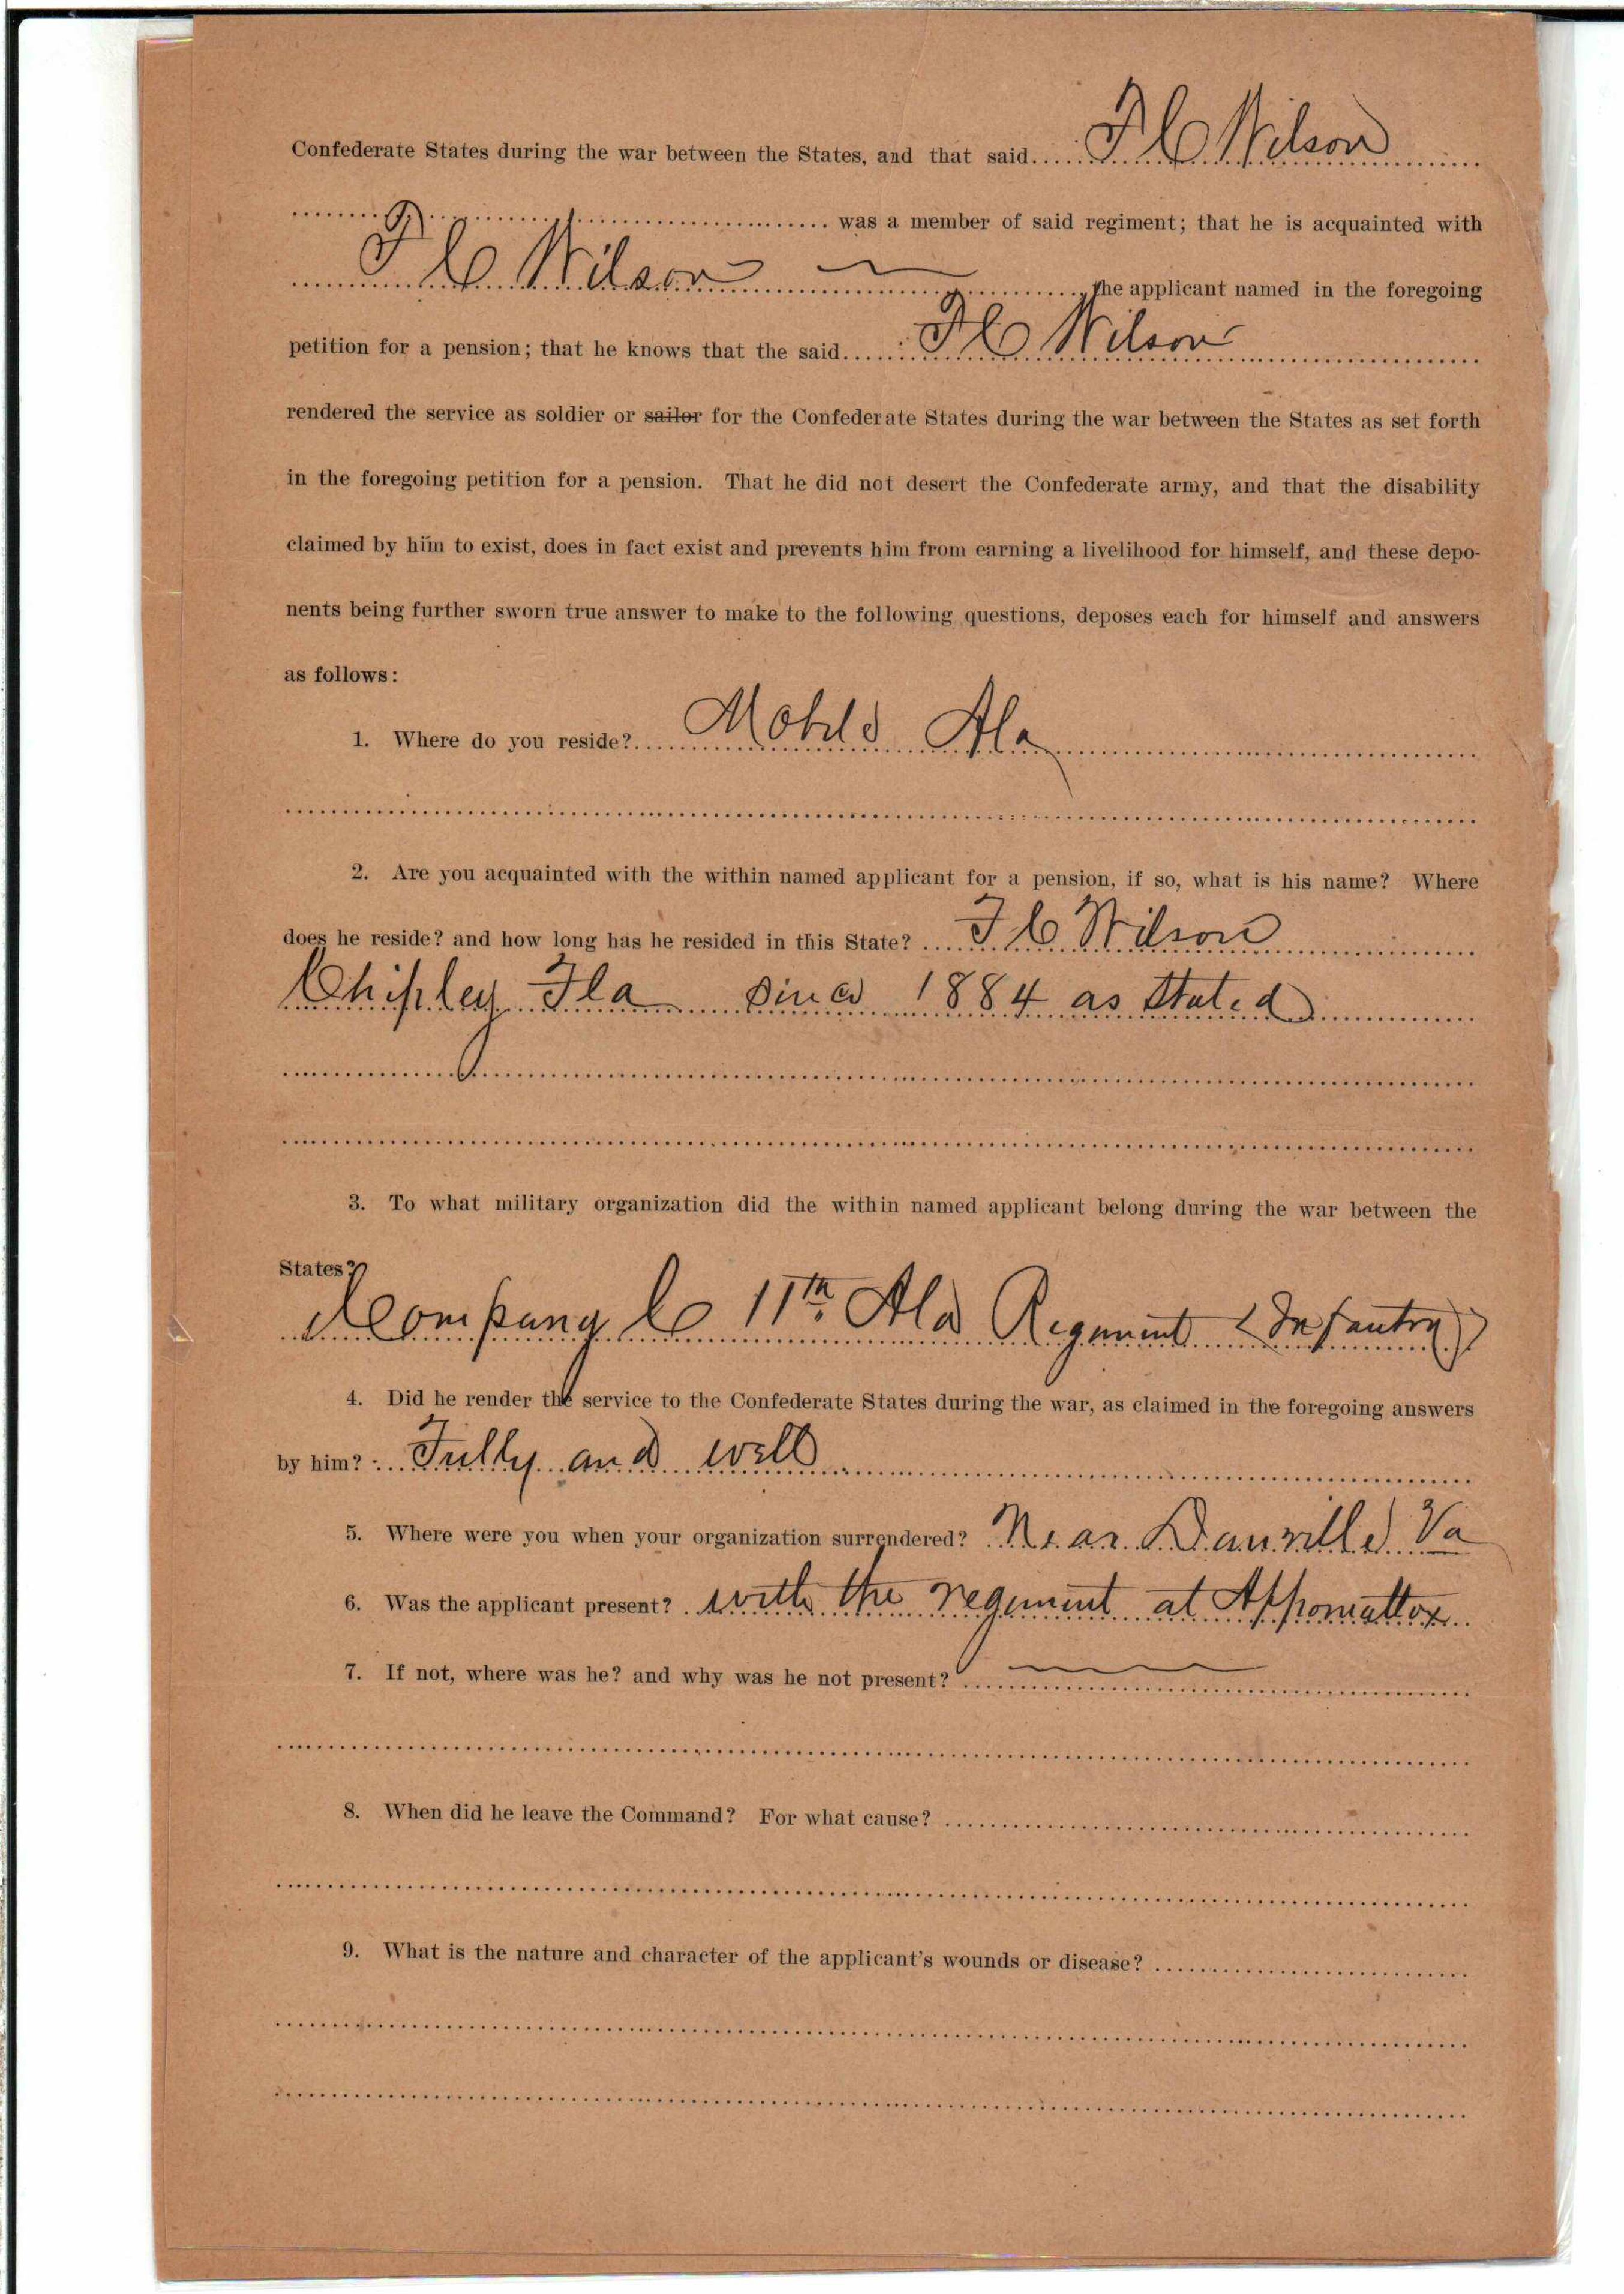 Confederate States during the war between the States, and that said..... F C Wilson
was a member of said regiment; that he is acquainted with
F C Wilson the applicant named in the foregoing
petition for a pension; that he knows that the said..... F C Wilson
rendered the service as soldier or sailor for the Confederate States during the war between the States as set forth
in the foregoing petition for a pension. That he did not desert the Confederate army, and that the disability
claimed by him to exist, does in fact exist and prevents him from earning a livelihood for himself, and these depo-
nents being further sworn true answer to make to the following questions, deposes each for himself and answers
as follows:
1. Where do you reside?.... Mobile Ala
2. Are you acquainted with the within named applicant for a pension, if so, what is his name? Where
does he reside? and how long has he resided in this State? .... F C Wilson
Chipley Fla since 1884 as stated
3. To what military organization did the within named applicant belong during the war between the
States?
Company C 11th Ala Regiment (Infantry)
4. Did he render the service to the Confederate States during the war, as claimed in the foregoing answers
by him? Fully and well
5. Where were you when your organization surrendered? Near Danville Va
6. Was the applicant present? with the regiment at Appomattox
7. If not, where was he? and why was he not present?
8. When did he leave the Command? For what cause?
9. What is the nature and character of the applicant's wounds or disease?